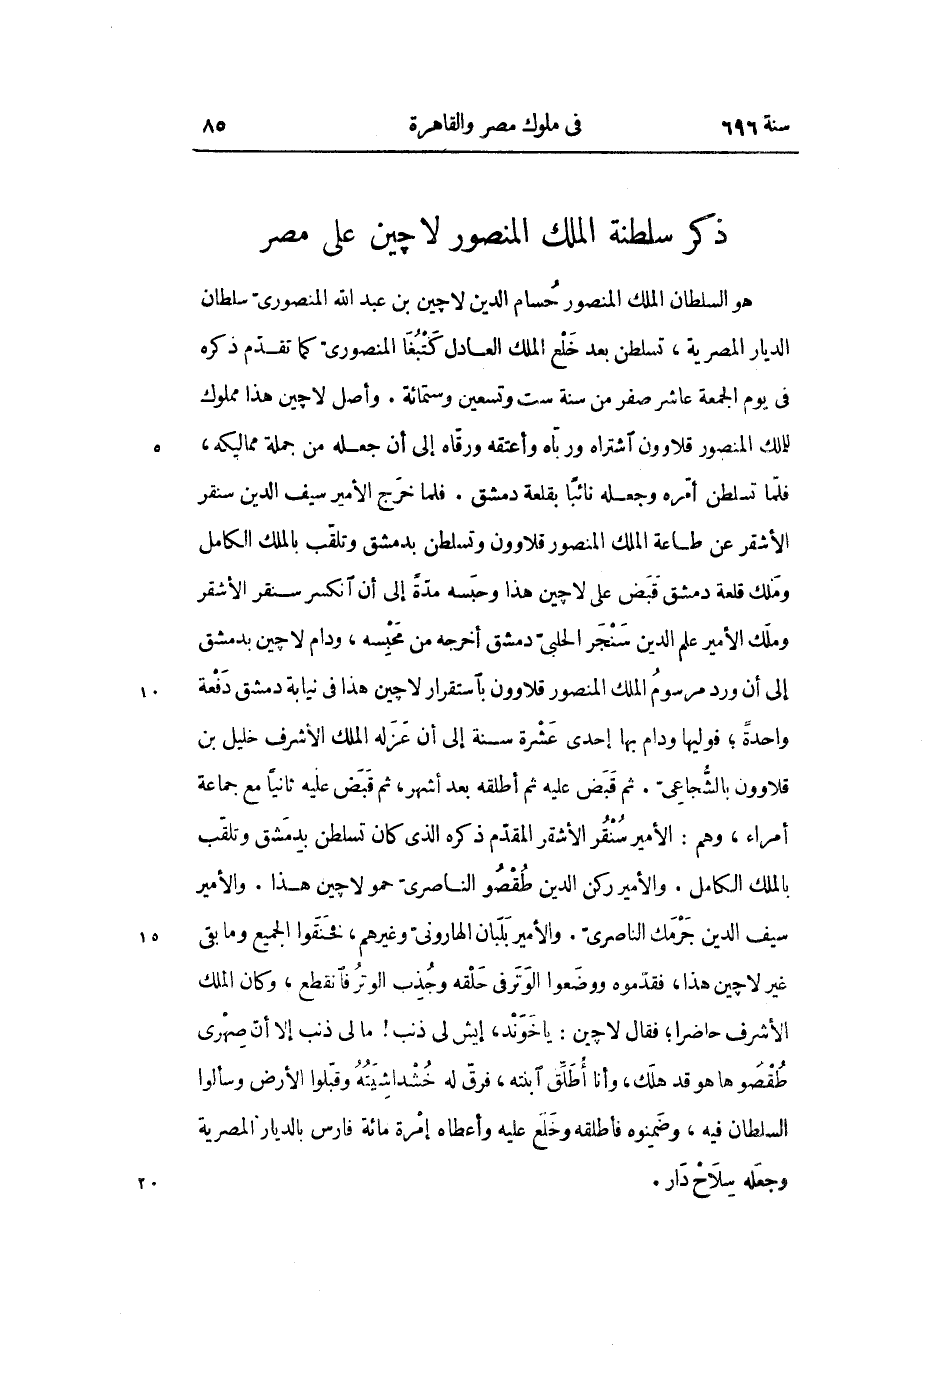 سنة ٦٩٦ فى ملوك مصر والقاهرة ٨٥
ذكر سلطنة الملك المنصور لاچين على مصر
هو السلطان الملك المنصور حُسام الدين لاچين بن عبد الله المنصورىّ سلطان
الديار المصرية ، تسلطن بعد خَلْع الملك العادل كَتْبُغَا المنصورىّ كما تقدّم ذكره
فى يوم الجمعة عاشر صفر من سنة ست وتسعين وستمائة . وأصل لاچين هذا مملوك
للملك المنصور قلاوون آشتراه وربّاه وأعتقه ورقّاه إلى أن جعله من جملة مماليكه ، ٥
فلمّا تسلطن أمّره وجعله نائبًا بقلعة دمشق . فلما خرَج الأمير سيف الدين سنقر
الأشقر عن طاعة الملك المنصور قلاوون وتسلطن بدمشق وتلقّب بالملك الكامل
ومَلك قلعة دمشق قَبَض على لاچين هذا وحبَسه مدّةً إلى أن آنكسر سنقر الأشقر
وملَك الأمير علم الدين سَنْجَر الحلبىّ دمشق أخرجه من مَحْبِسه ، ودام لاچين بدمشق
إلى أن ورد مرسومُ الملك المنصور قلاوون بآستقرار لاچين هذا فى نيابة دمشق دَفْعة ١٠
واحدةً ؛ فوليها ودام بها إحدى عَشْرة سنة إلى أن عَزَله الملك الأشرف خليل بن
قلاوون بالشُّجاعىّ . ثم قَبَض عليه ثم أطلقه بعد أشهر ، ثم قَبَض عليه ثانيًا مع جماعة
أمراء ، وهم : الأمير سُنْقُر الأشقر المقدّم ذكره الذى كان تسلطن بِدمَشق وتلقّب
بالملك الكامل . والأمير ركن الدين طُقْصُو الناصرىّ حمو لاچين هذا . والأمير
سيف الدين جَرْمَك الناصرىّ . والأمير بَلَبان الهارونىّ وغيرهم ، فخنَقوا الجميع وما بقى ١٥
غير لاچين هذا ، فقدّموه ووضَعوا الوَتَر فى حَلْقه وجُذِب الوترُ فآنقطع ، وكان الملك
الأشرف حاضرا ؛ فقال لاچين : ياخَوَنْد ، إيش لى ذنب ! ما لى ذنب إلا أنّ صِهْرى
طُقْصُو ها هو قد هلَك ، وأنا أُطَلِّق آبنته ، فرقّ له خُشْداشِيَتُهُ وقبّلوا الأرض وسألوا
السلطان فيه ، وضَمِنوه فأطلقه وخَلَع عليه وأعطاه إمْرة مائة فارس بالديار المصرية
وجعَله سِلَاحْ دَار . ٢٠